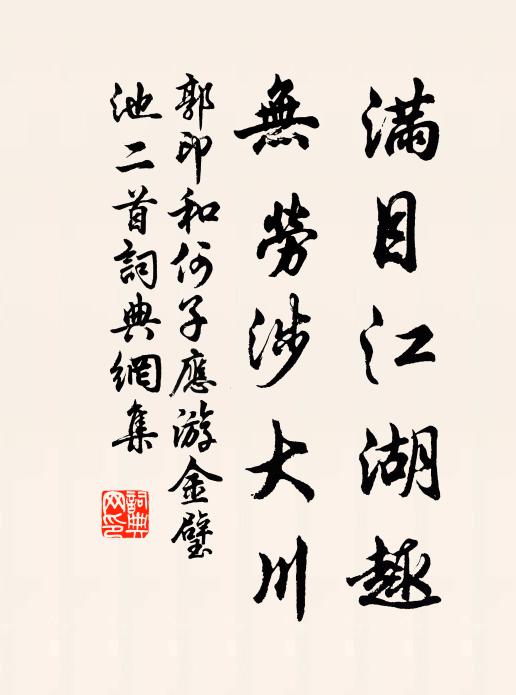 滿目江湖趣
無勞涉大川
郭印和何子應游金璧
池二首詞典網集
詞典網印